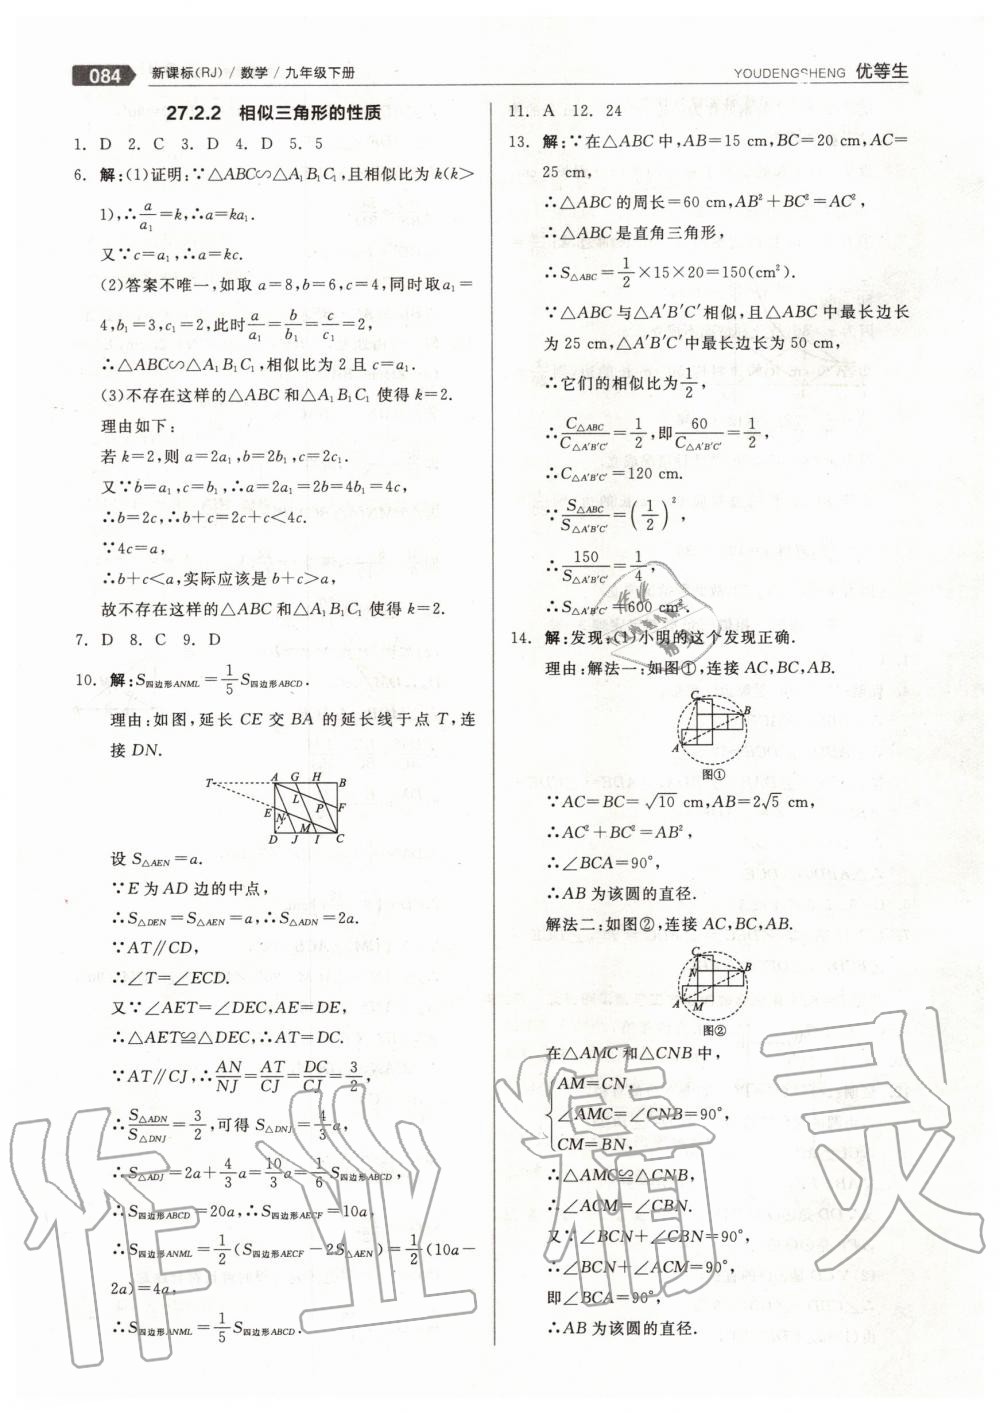 084 新课标(RJ)/数学/九年级下册
YOUDENGSHENG 优等生
27.2.2 相似三角形的性质
1. D 2. C 3. D 4. D 5. 5
6. 解:(1)证明:∵△ABC∽△A₁B₁C₁,且相似比为k(k>
1),∴a/a₁=k,∴a=ka₁.
又∵c=a₁,∴a=kc.
(2)答案不唯一,如取a=8,b=6,c=4,同时取a₁=
4,b₁=3,c₁=2,此时a/a₁=b/b₁=c/c₁=2,
∴△ABC∽△A₁B₁C₁,相似比为2且c=a₁.
(3)不存在这样的△ABC和△A₁B₁C₁使得k=2.
理由如下:
若k=2,则a=2a₁,b=2b₁,c=2c₁.
又∵b=a₁,c=b₁,∴a=2a₁=2b=4b₁=4c,
∴b=2c,∴b+c=2c+c<4c.
∵4c=a,
∴b+c<a,实际应该是b+c>a,
故不存在这样的△ABC和△A₁B₁C₁使得k=2.
7. D 8. C 9. D
10. 解:S四边形ANML=1/5S四边形ABCD.
理由:如图,延长CE交BA的延长线于点T,连
接DN.
T A G H B
L P F
E N
M
D J I C
设S△AEN=a.
∵E为AD边的中点,
∴S△DEN=S△AEN=a,∴S△ADN=2a.
∵AT∥CD,
∴∠T=∠ECD.
又∵∠AET=∠DEC,AE=DE,
∴△AET≌△DEC,∴AT=DC.
∵AT∥CJ,∴AN/NJ=AT/CJ=DC/CJ=3/2,
∴S△ADN/S△DNJ=3/2,可得S△DNJ=4/3a,
∴S△ADJ=2a+4/3a=10/3a=1/6S四边形ABCD,
∴S四边形ABCD=20a,∴S四边形AECF=10a,
∴S四边形ANML=1/2(S四边形AECF-2S△AEN)=1/2(10a-
2a)=4a,
∴S四边形ANML=1/5S四边形ABCD.
11. A 12. 24
13. 解:∵在△ABC中,AB=15 cm,BC=20 cm,AC=
25 cm,
∴△ABC的周长=60 cm,AB²+BC²=AC²,
∴△ABC是直角三角形,
∴S△ABC=1/2×15×20=150(cm²).
∵△ABC与△A′B′C′相似,且△ABC中最长边长
为25 cm,△A′B′C′中最长边长为50 cm,
∴它们的相似比为1/2,
∴C△ABC/C△A′B′C′=1/2,即60/C△A′B′C′=1/2,
∴C△A′B′C′=120 cm.
∵S△ABC/S△A′B′C′=(1/2)²,
∴150/S△A′B′C′=1/4,
∴S△A′B′C′=600 cm².
14. 解:发现:(1)小明的这个发现正确.
理由:解法一:如图①,连接AC,BC,AB.
C
B
A
图①
∵AC=BC=√10 cm,AB=2√5 cm,
∴AC²+BC²=AB²,
∴∠BCA=90°,
∴AB为该圆的直径.
解法二:如图②,连接AC,BC,AB.
C
N B
A M
图②
在△AMC和△CNB中,
AM=CN,
∠AMC=∠CNB=90°,
CM=BN,
∴△AMC≌△CNB,
∴∠ACM=∠CBN.
又∵∠BCN+∠CBN=90°,
∴∠BCN+∠ACM=90°,
即∠BCA=90°,
∴AB为该圆的直径.
作业精灵